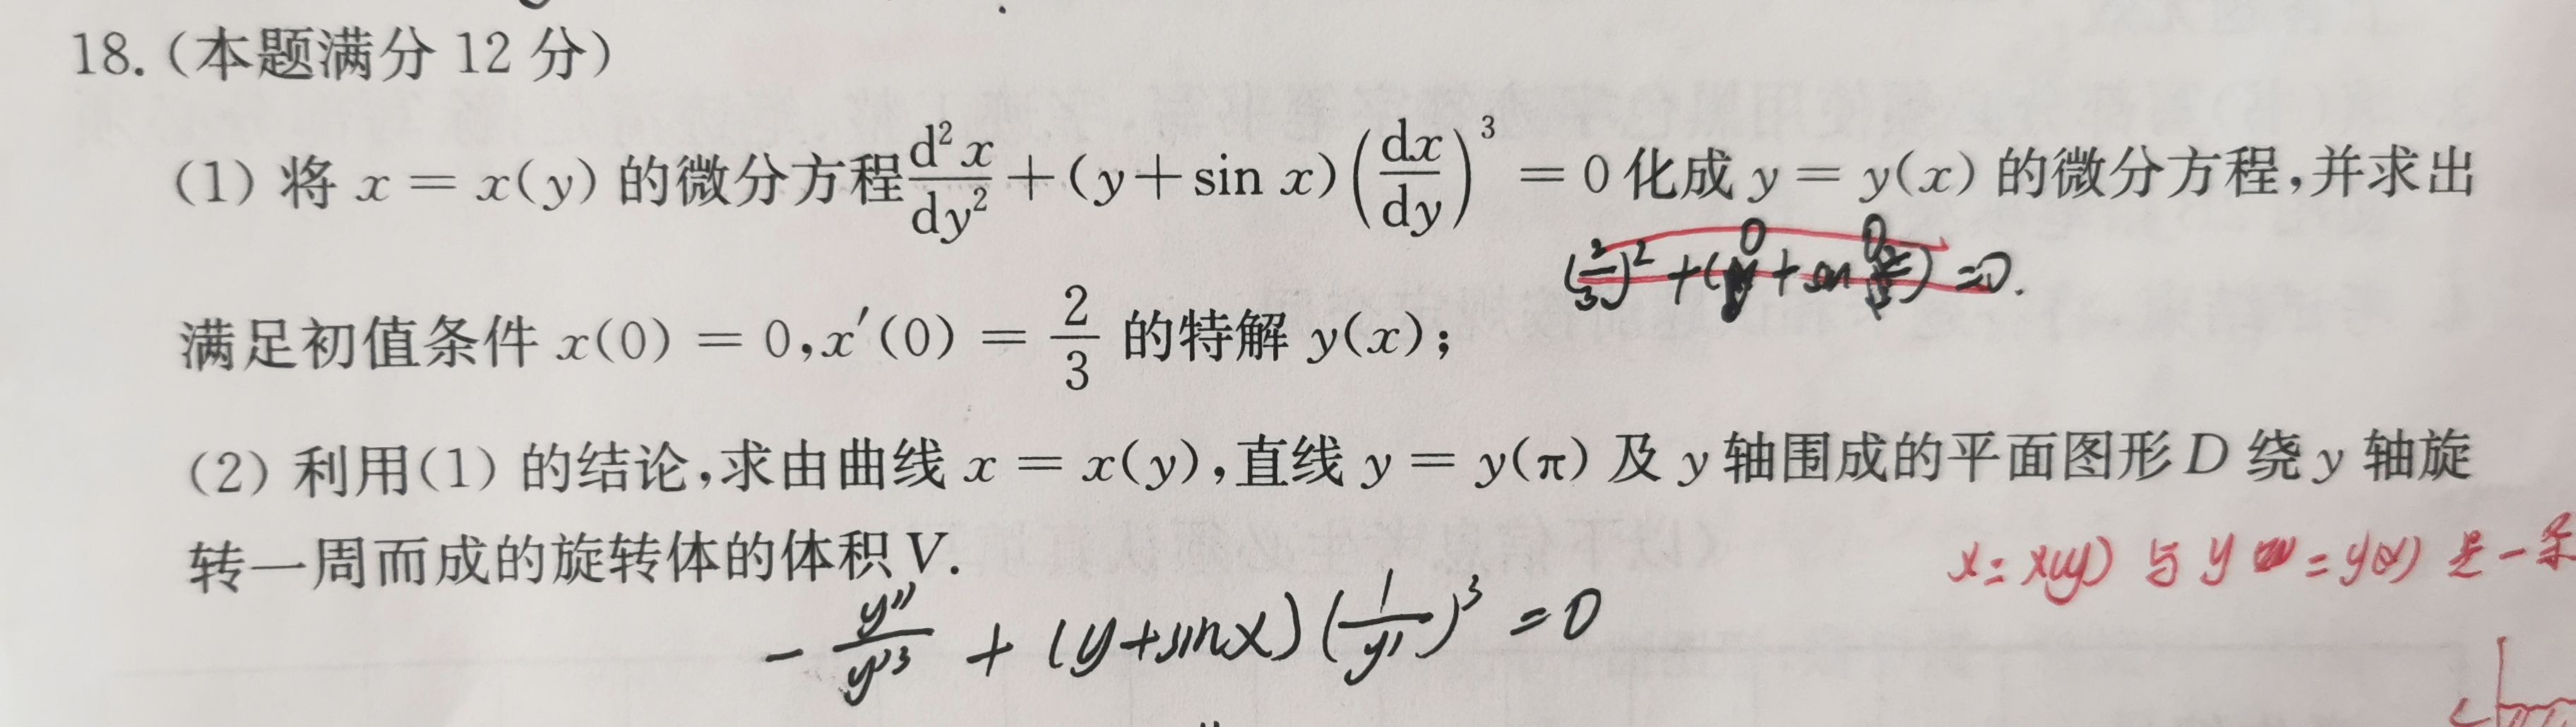 18.(本题满分 12 分)
(1) 将 x = x(y) 的微分方程 d²x/dy² + (y + sin x)(dx/dy)³ = 0 化成 y = y(x) 的微分方程,并求出
满足初值条件 x(0) = 0, x′(0) = 2/3 的特解 y(x);
(2) 利用(1) 的结论,求由曲线 x = x(y),直线 y = y(π) 及 y 轴围成的平面图形 D 绕 y 轴旋
转一周而成的旋转体的体积 V.
x = x(y) 与 y = y(x) 是一条
- y″/y′³ + (y + sin x)(1/y′)³ = 0